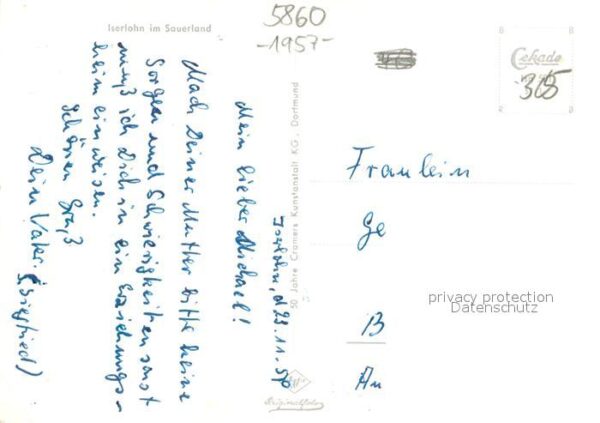 5860
-1957-
Iserlohn im Sauerland
Cekade
305
Iserlohn, d. 23.11.56
Mein lieber Michael!
Mach Deiner Mutter bitte keine
Sorgen und Schwierigkeiten sonst
muß ich Dich in ein Erziehungs-
heim einweisen.
Schönen Gruß
Dein Vater.
(Siegfried)
50 Jahre Cramers Kunstanstalt KG., Dortmund
Fraulein
Ge
B
An
privacy protection
Datenschutz
Originalfoto